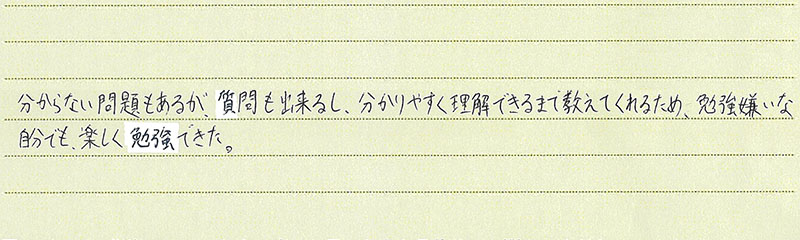 分からない問題もあるが、質問も出来るし、分かりやすく理解できるまで教えてくれるため、勉強嫌いな
自分でも、楽しく勉強できた。